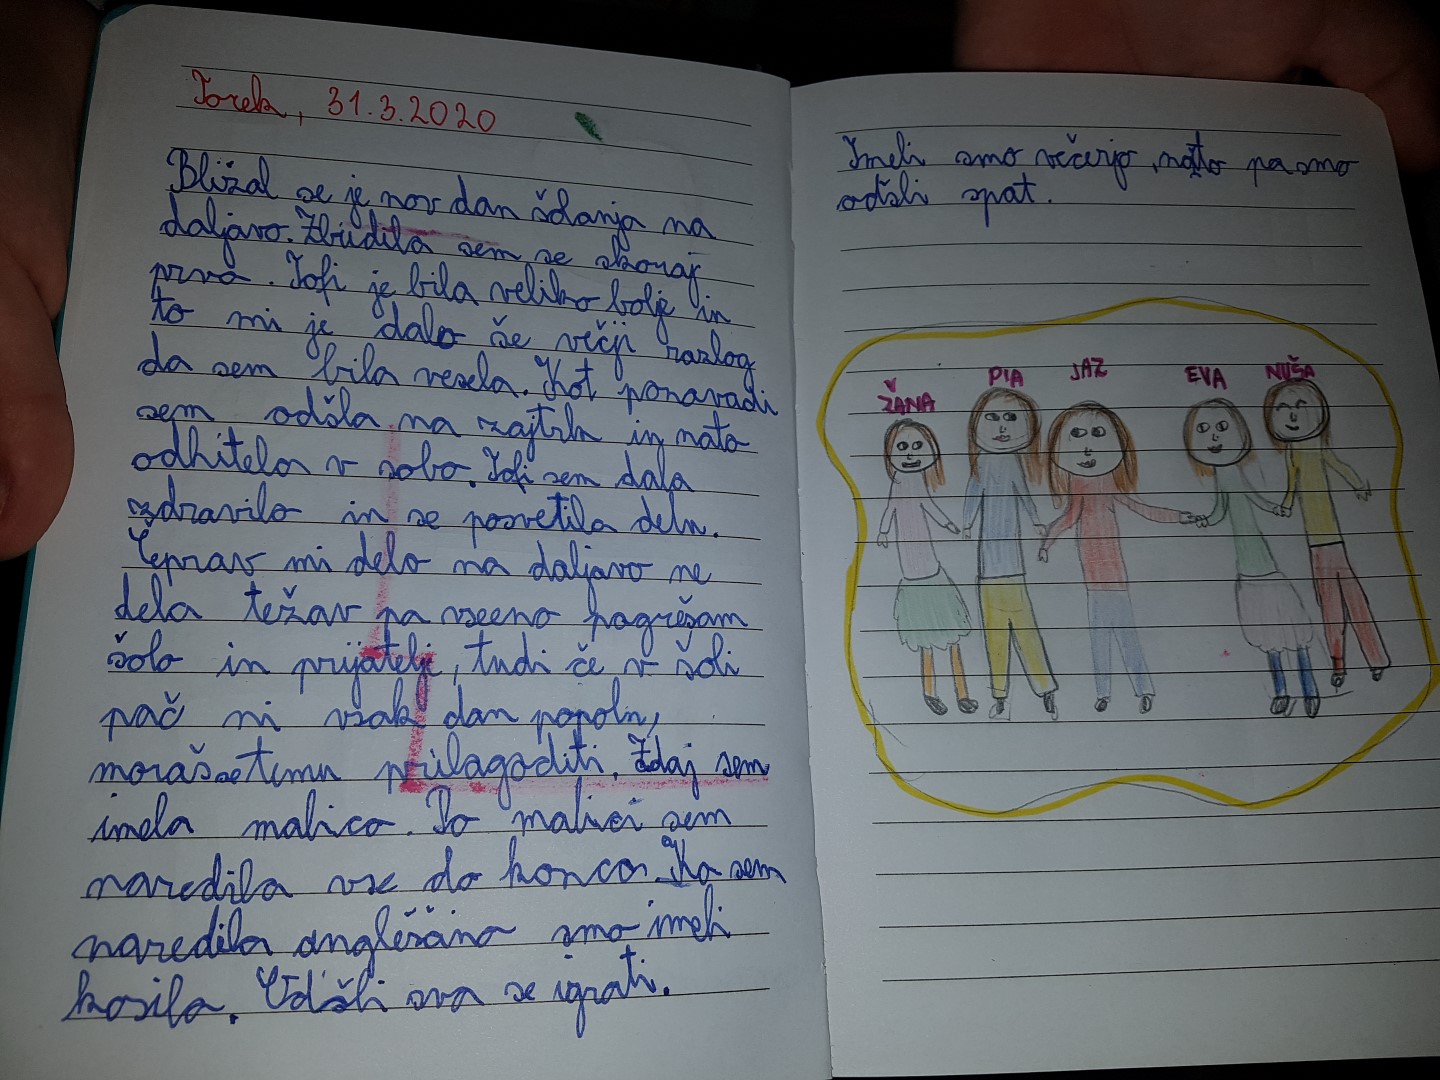 Torek, 31.3.2020
Bližal se je nov dan šolanja na
daljavo. Zbudila sem se skoraj
prva. Tofi je bila veliko bolje in
to mi je dalo še večji razlog
da sem bila vesela. Kot ponavadi
sem odšla na zajtrk in nato
odhitela v sobo. Tofi sem dala
zdravilo in se posvetila delu.
Čeprav mi delo na daljavo ne
dela težav pa vseeno pogrešam
šolo in prijatelje, tudi če v šoli
pač ni vsak dan popoln,
moraš se temu prilagoditi. Zdaj sem
imela malico. Po malici sem
naredila vse do konca. Ko sem
naredila angleščino smo imeli
kosila. Odšli sva se igrati.
Imeli smo večerjo, nato pa smo
odšli spat.
ŽANA PIA JAZ EVA NUŠA